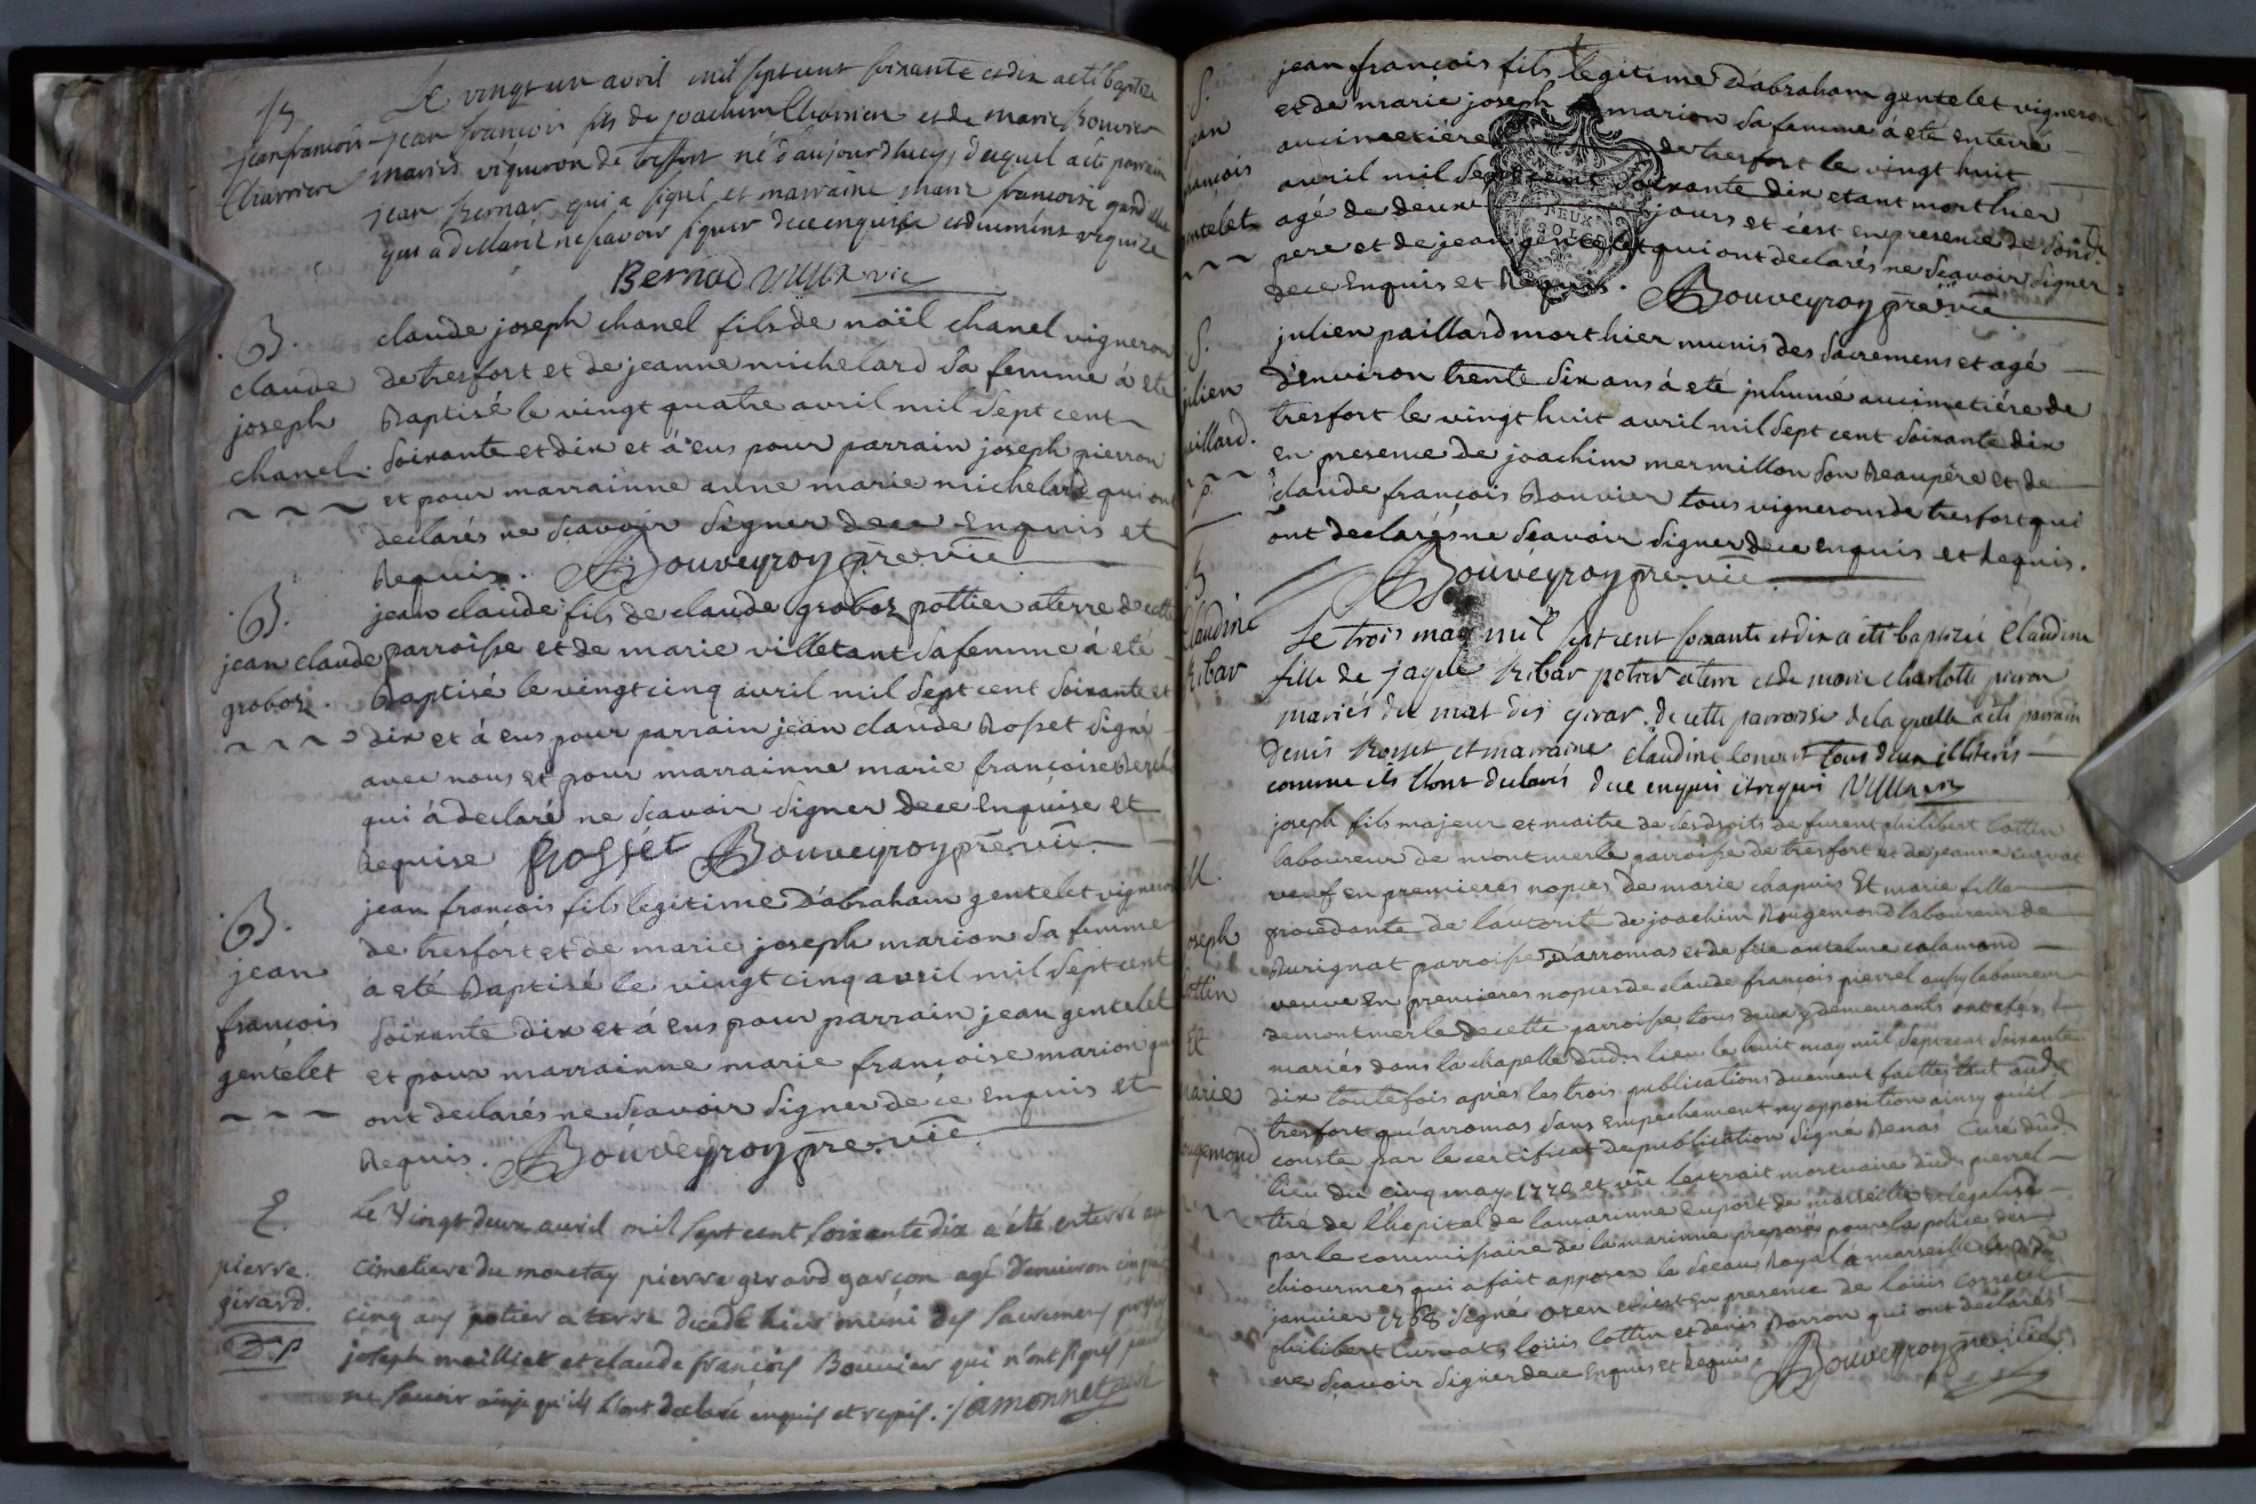 B
jean francois
Charriere
Le vingt un avril mil sept cent soixante et dix a eté baptizé
jean francois fils de joachim Charriere et de marie Bouvier
mariés vigneron de tresfort né d'aujourd'huy, duquel a eté parrain
jean bernar qui a signé et marraine marie francoise
qui a declaré ne savoir signer de ce enquise et duement requize
Bernad vic
B.
claude
joseph
chanel.
claude joseph chanel fils de noël chanel vigneron
de tresfort et de jeanne michelard sa femme à eté
Baptisé le vingt quatre avril mil sept cent
soixante et dix et à eus pour parrain joseph pierron
et pour marrainne anne marie michelard qui ont
declarés ne scavoir signer de ce enquis et
Requis. Bouveyron pre. vic
B.
jean claude
groboz.
jean claude fils de claude groboz pottier aterre de cette
parroisse et de marie villetant sa femme à eté
Baptisé le vingt cinq avril mil sept cent soixante et
dix et à eus pour parrain jean claude Rosset signé
avec nous et pour marrainne marie françoise
qui à declaré ne scavoir signer de ce enquise et
Requise Rosset Bouveyron pre. vic.
B.
jean
francois
gentelet
jean françois fils legitime d'abraham gentelet vigneron
de tresfort et de marie joseph marion sa femme
à eté Baptisé le vingt cinq avril mil sept cent
soixante dix et à eus pour parrain jean gentelet
et pour marrainne marie françoise marion qui
ont declarés ne scavoir signer de ce enquis et
Requis. Bouveyron pre. vic.
pierre
girard.
Le Vingt deux avril mil sept cent soixante dix a été enterré au
cimetiere du monetay pierre girard garçon agé d'environ
cinq ans potier a terre decedé hier muni des sacremens
joseph meilliat et claude françois Bouvier qui n'ont signés pour
ne savoir ainsy qu'ils l'ont declaré enquis et requis. jamonnet
S.
jean
françois
gentelet
jean françois fils legitime d'abraham gentelet vigneron
et de marie joseph marion sa femme à eté enterré
au cimetiére de tresfort le vingt huit
avril mil sept cent soixante dix etant mort hier
agé de deux jours et c'est en presence de son d.
pere et de jean gentelet qui ont declarés ne scavoir signer
de ce enquis et Requis. Bouveyron pre. vic
S.
julien
paillard.
p.
julien paillard mort hier munis des sacremens et agé
d'environ trente six ans à eté inhumé au cimetiére de
tresfort le vingt huit avril mil sept cent soixante dix
en presence de joachim mermillon son Beaupére et de
claude françois Bouvier tous vignerons de tresfort qui
ont declarés ne scavoir signer de ce enquis et Requis.
Bouveyron pre. vic
B
Claudine
Ribar
Le trois may mil sept cent soixante et dix a eté baptizée Claudine
fille de jaque Ribar potier aterre et de marie charlotte pieron
mariés du mat des girar. de cette parroisse de la quelle a eté parrain
denis Rosset et marraine claudine tous deux illiterés
comme ils l'ont declarés de ce enquis et requis
M.
joseph
Cottin
Et
Marie
Rougemond
joseph fils majeur et maitre de ses droits de furent philibert Cottin
laboureur de montmerle parroisse de tresfort et de jeanne curvat
veuf en premieres nopces de marie chapuis Et marie fille
procedante de l'autorité de joachim Rougemond laboureur de
Burignat parroisse d'arromas et de feüe antelme calamand
veuve en premieres nopces de claude françois pierrel aussy laboureur
de montmerle de cette parroisse tous deux y demeurants ont etés
mariés dans la chapelle dud. lieu le huit may mil sept cent soixante
dix toutefois après les trois publications duement faittes tant aud.
tresfort qu'arromas sans empechement ny opposition ainsy qu'il
conste par le certificat de publication signé Benas Curé dud.
lieu du cinq may 1770 et vû l'extrait mortuaire dud. pierrel
tiré de l'hopital de la marinne du port de marseille et legalisé
par le commissaire de la marinne preposé pour la police des
chiourmes qui a fait apposer le sceau Royal à marseille le
janvier 1768 signé ozen et c'est en presence de loüis Corretel
philibert Curvat, loüis Cottin et denis Borron qui ont declarés
ne scavoir signer de ce enquis et Requis. Bouveyron pre. vic.